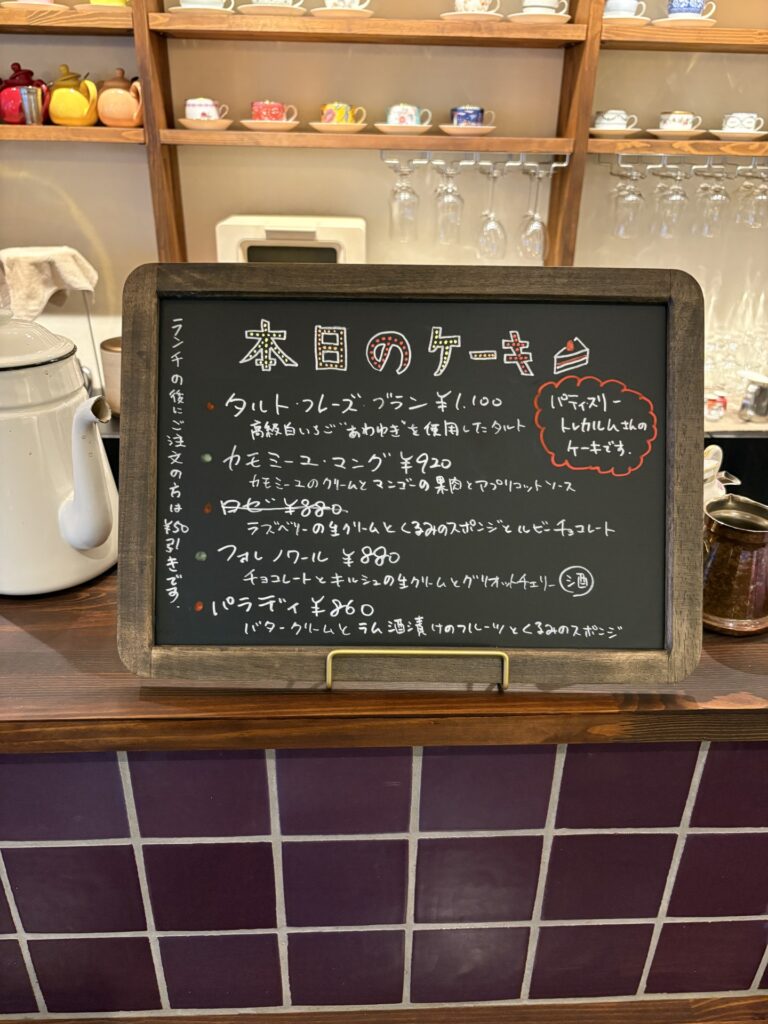 本日のケーキ
ランチの後にご注文の方は
¥50引きです。
タルト・フレーズ・ブラン ¥1,100
高級白いちご"あわゆき"を使用したタルト
パティスリー
トレカルムさんの
ケーキです。
カモミーユ・マング ¥920
カモミーユのクリームとマンゴーの果肉とアプリコットソース
ロゼ ¥880
ラズベリーの生クリームとくるみのスポンジとルビーチョコレート
フォレノワール ¥880
チョコレートとキルシュの生クリームとグリオットチェリー 酒
パラディ ¥860
バタークリームとラム酒漬けのフルーツとくるみのスポンジ